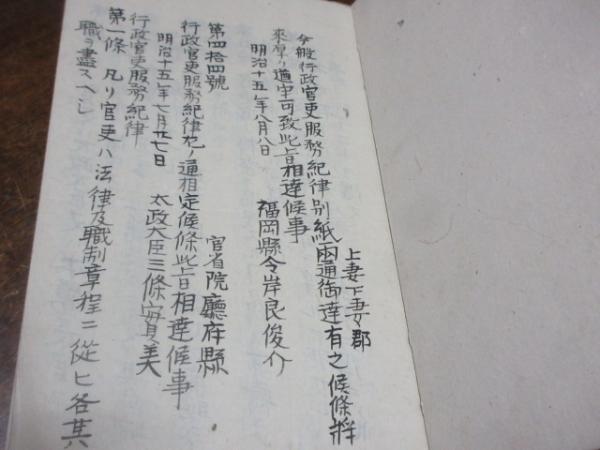 上妻下妻郡
今般行政官吏服務紀律別紙兩通御達有之候條将
来厚ク遵守可致此旨相達候事
明治十五年八月八日　福岡縣令岸良俊介
第四拾四號
官省院廳府縣
行政官吏服務紀律左ノ通相定候條此旨相達候事
明治十五年七月廿七日　太政大臣三條實美
行政官吏服務紀律
第一條　凡リ官吏ハ法律及職制章程ニ從ヒ各其
職ヲ盡スヘシ